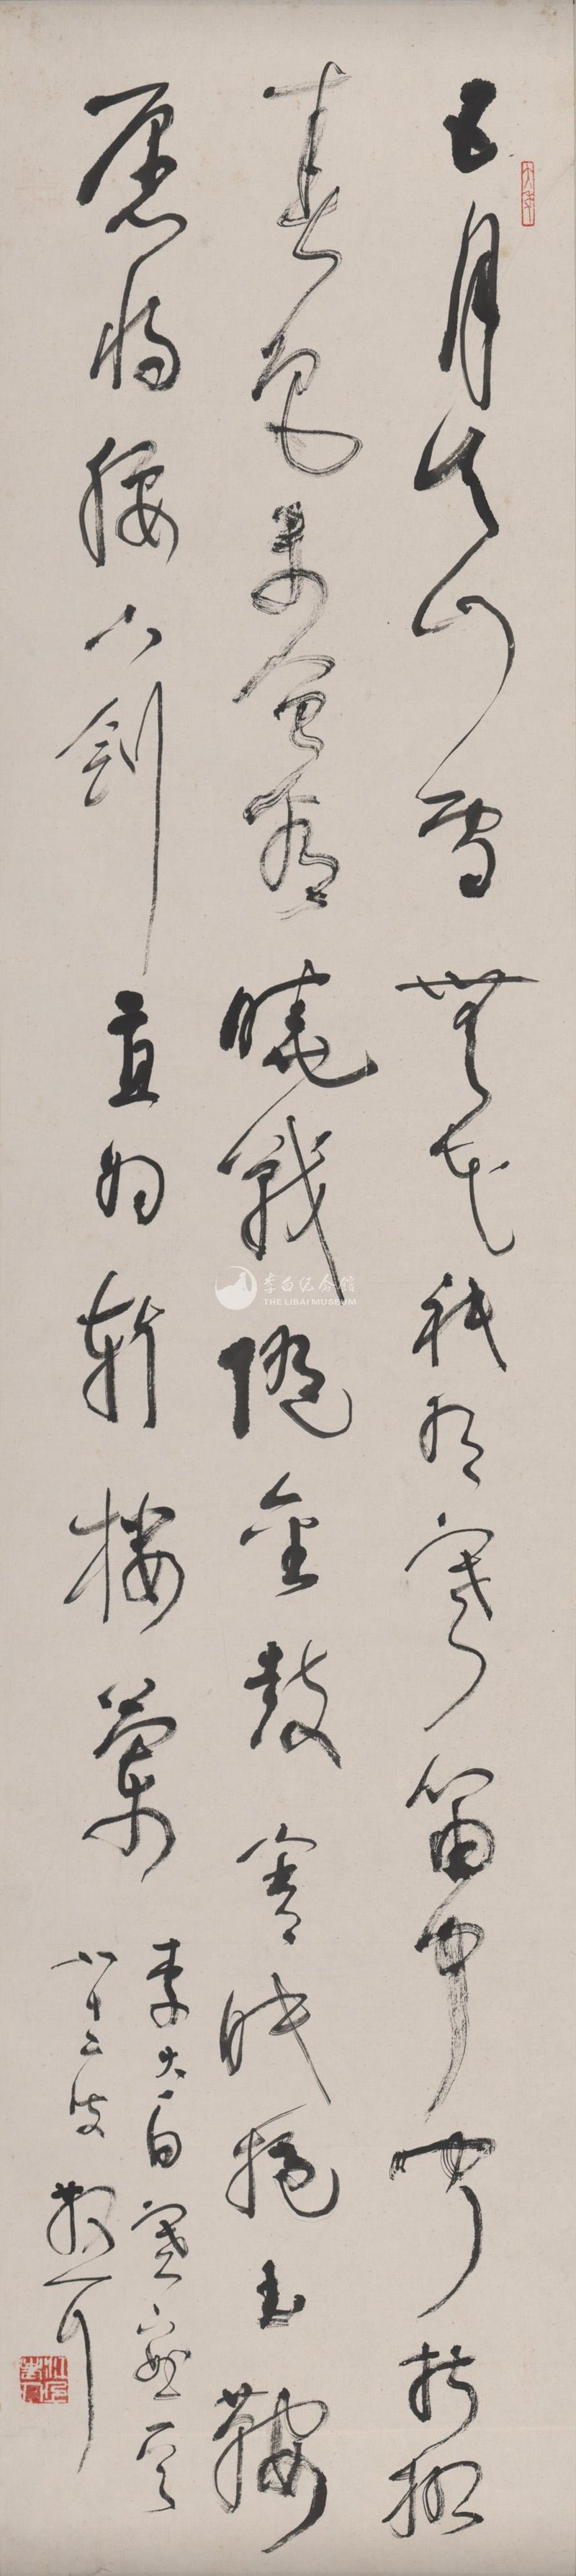 五月天山雪無花祇有寒笛中聞折柳
春色未曾看曉戰隨金鼓宵眠抱玉鞍
愿將腰下劍直为斬楼蘭
李太白塞
八十二叟散耳
大年
李白纪念馆
THE LIBAI MUSEUM